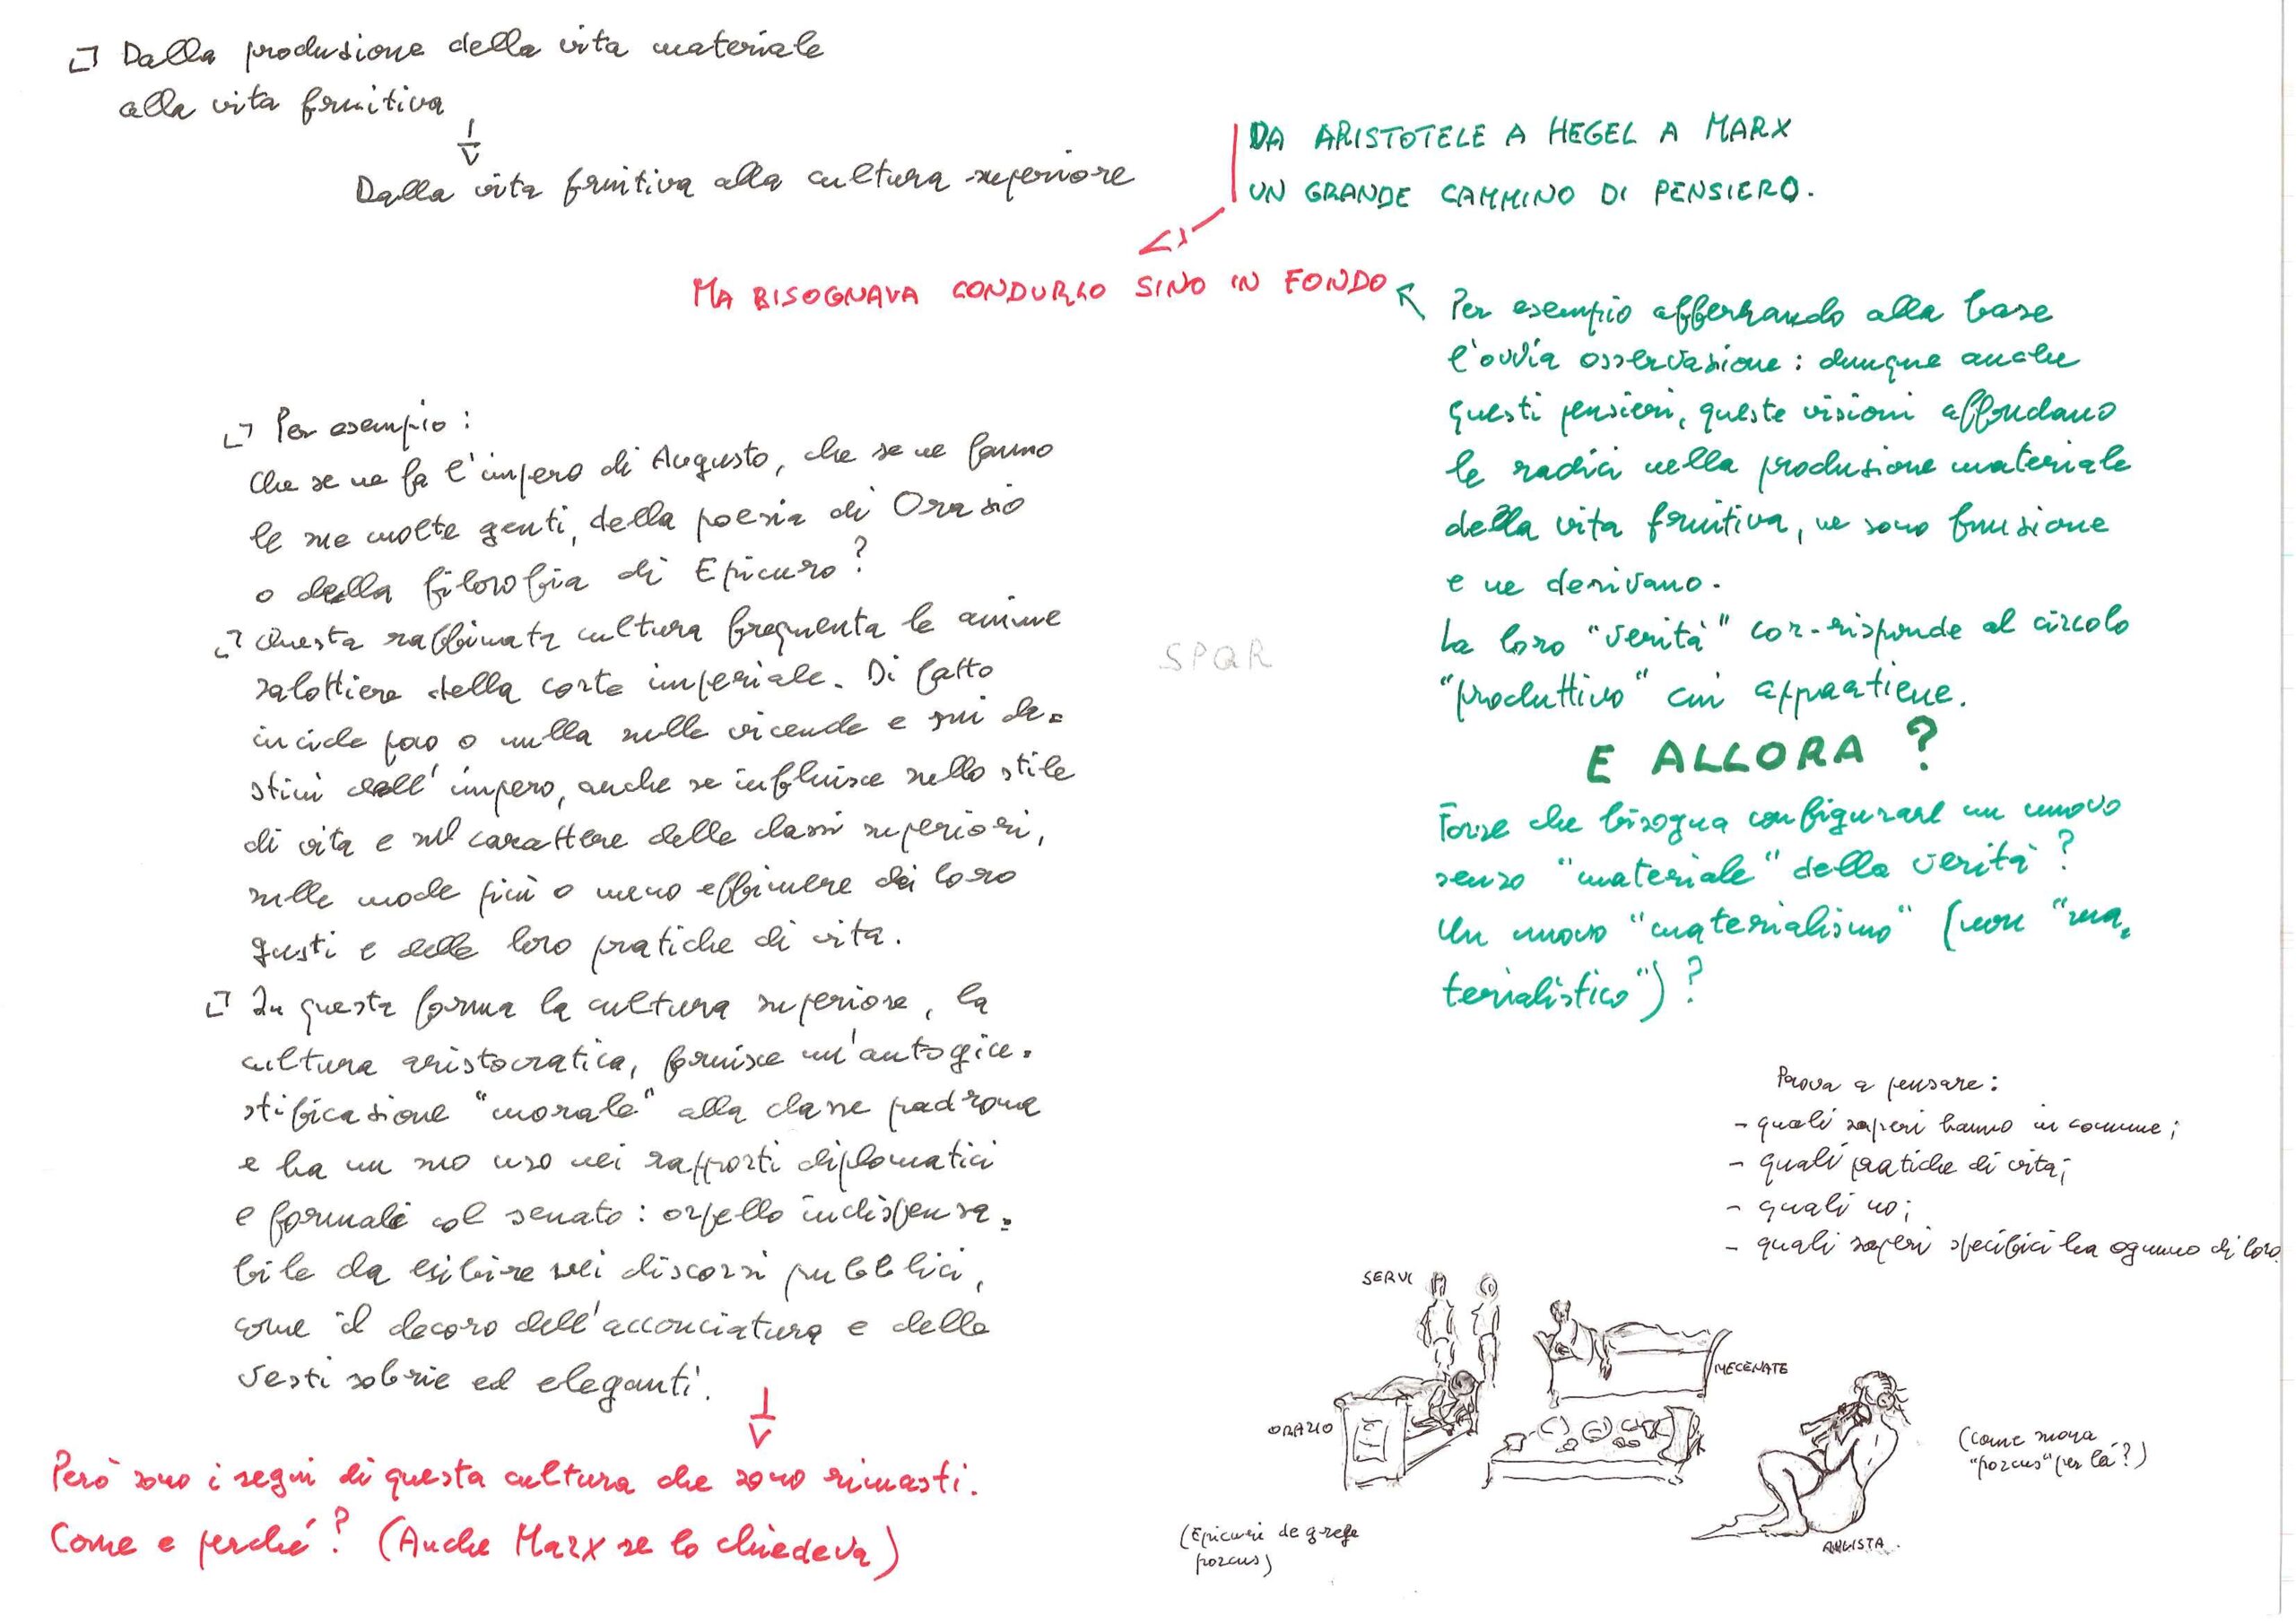 Dalla produzione della vita materiale
alla vita fruitiva
Dalla vita fruitiva alla cultura superiore
DA ARISTOTELE A HEGEL A MARX
UN GRANDE CAMMINO DI PENSIERO.
MA BISOGNAVA CONDURLO SINO IN FONDO
Per esempio afferrando alla base
l'ovvia osservazione: dunque anche
questi pensieri, queste visioni affondano
le radici nella produzione materiale
della vita fruitiva, ne sono fruizione
e ne derivano.
La loro "verità" cor-risponde al circolo
"produttivo" cui appartiene.
E ALLORA?
Forse che bisogna configurare un nuovo
senso "materiale" della verità?
Un nuovo "materialismo" (non "ma=
terialistico")?
Per esempio:
Che se ne fa l'impero di Augusto, che se ne fanno
le sue molte genti, della poesia di Orazio
o della filosofia di Epicuro?
Questa raffinata cultura frequenta le anime
salottiere della corte imperiale. Di fatto
incide poco o nulla sulle vicende e sui de=
stini dell'impero, anche se influisce sullo stile
di vita e sul carattere delle classi superiori,
sulle mode più o meno effimere dei loro
gusti e delle loro pratiche di vita.
In questa forma la cultura superiore, la
cultura aristocratica, fornisce un'autogiu=
stificazione "morale" alla classe padrona
e ha un suo uso nei rapporti diplomatici
e formali col senato: orpello indispensa=
bile da esibire nei discorsi pubblici,
come il decoro dell'acconciatura e delle
vesti sobrie ed eleganti.
Però sono i segni di questa cultura che sono rimasti.
Come e perché? (Anche Marx se lo chiedeva)
SPQR
Prova a pensare:
- quali saperi hanno in comune;
- quali pratiche di vita;
- quali no;
- quali saperi specifici ha ognuno di loro.
SERVI
MECENATE
ORAZIO
AULISTA.
(Epicuri de grege
porcus)
(come suona
"porcus" per la?)